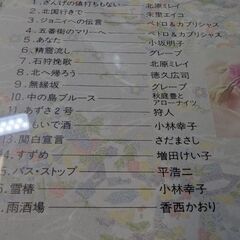 1. ざんげの値打ちもない 北原ミレイ
2. 北国行きで 朱里エイコ
3. ジョニィへの伝言 ペドロ&カプリシャス
4. 五番街のマリーへ ペドロ&カプリシャス
5. あなた 小坂明子
6. 精霊流し グレープ
7. 石狩挽歌 北原ミレイ
8. 北へ帰ろう 徳久広司
9. 無縁坂 グレープ
10. 中の島ブルース 秋庭豊とアローナイツ
11. あずさ2号 狩人
もいで酒 小林幸子
13. 関白宣言 さだまさし
4. すずめ 増田けい子
5. バス・ストップ 平浩二
6. 雪椿 小林幸子
. 雨酒場 香西かおり